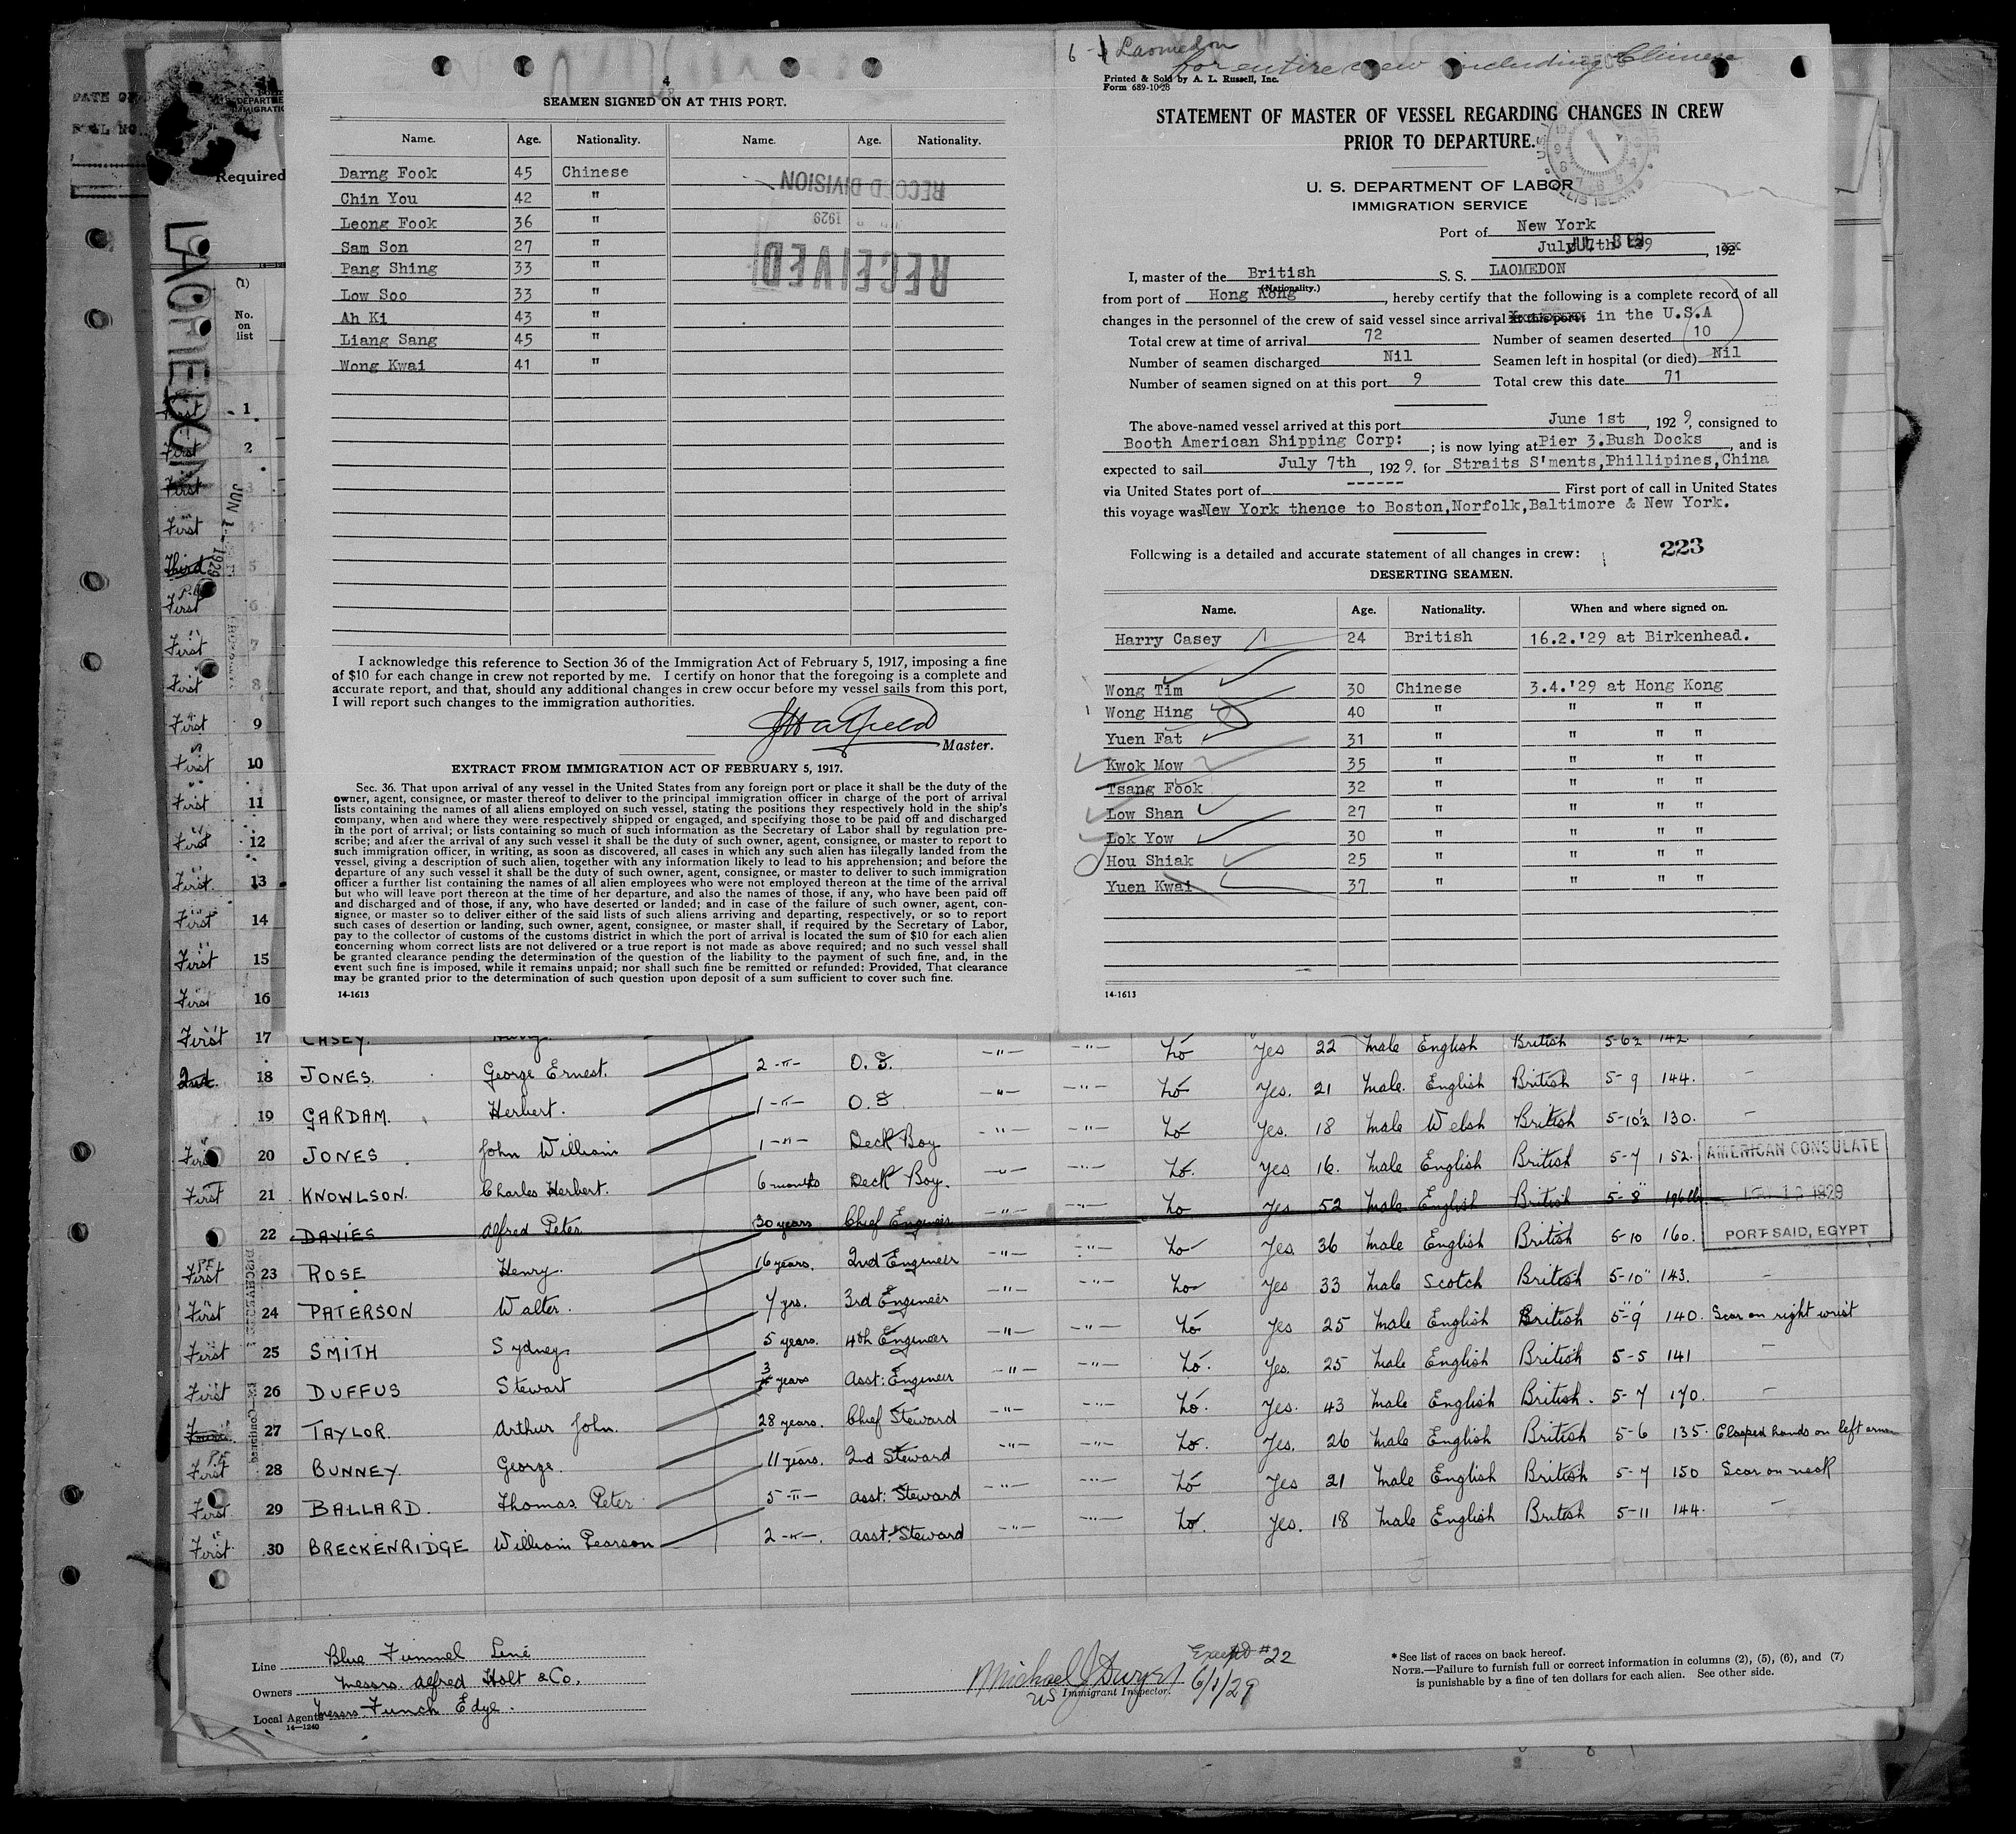 4
SEAMEN SIGNED ON AT THIS PORT.
Name. Age. Nationality. Name. Age. Nationality.
Darng Fook 45 Chinese
Chin You 42 "
Leong Fook 36 "
Sam Son 27 "
Pang Shing 33 "
Low Soo 33 "
Ah Ki 43 "
Liang Sang 45 "
Wong Kwai 41 "
RECORD DIVISION
1929
RECEIVED
I acknowledge this reference to Section 36 of the Immigration Act of February 5, 1917, imposing a fine
of $10 for each change in crew not reported by me. I certify on honor that the foregoing is a complete and
accurate report, and that, should any additional changes in crew occur before my vessel sails from this port,
I will report such changes to the immigration authorities.
Master.
EXTRACT FROM IMMIGRATION ACT OF FEBRUARY 5, 1917.
Sec. 36. That upon arrival of any vessel in the United States from any foreign port or place it shall be the duty of the
owner, agent, consignee, or master thereof to deliver to the principal immigration officer in charge of the port of arrival
lists containing the names of all aliens employed on such vessel, stating the positions they respectively hold in the ship's
company, when and where they were respectively shipped or engaged, and specifying those to be paid off and discharged
in the port of arrival; or lists containing so much of such information as the Secretary of Labor shall by regulation pre-
scribe; and after the arrival of any such vessel it shall be the duty of such owner, agent, consignee, or master to report to
such immigration officer, in writing, as soon as discovered, all cases in which any such alien has illegally landed from the
vessel, giving a description of such alien, together with any information likely to lead to his apprehension; and before the
departure of any such vessel it shall be the duty of such owner, agent, consignee, or master to deliver to such immigration
officer a further list containing the names of all alien employees who were not employed thereon at the time of the arrival
but who will leave port thereon at the time of her departure, and also the names of those, if any, who have been paid off
and discharged and of those, if any, who have deserted or landed; and in case of the failure of such owner, agent, con-
signee, or master so to deliver either of the said lists of such aliens arriving and departing, respectively, or so to report
such cases of desertion or landing, such owner, agent, consignee, or master shall, if required by the Secretary of Labor,
pay to the collector of customs of the customs district in which the port of arrival is located the sum of $10 for each alien
concerning whom correct lists are not delivered or a true report is not made as above required; and no such vessel shall
be granted clearance pending the determination of the question of the liability to the payment of such fine, and, in the
event such fine is imposed, while it remains unpaid; nor shall such fine be remitted or refunded: Provided, That clearance
may be granted prior to the determination of such question upon deposit of a sum sufficient to cover such fine.
14-1613
6 Laomedon
for entire crew including Chinese
Printed & Sold by A. L. Russell, Inc.
Form 689-10-28
STATEMENT OF MASTER OF VESSEL REGARDING CHANGES IN CREW
PRIOR TO DEPARTURE.
U. S. DEPARTMENT OF LABOR
IMMIGRATION SERVICE
ELLIS ISLAND
Port of New York
July 7th 29, 192
I, master of the British S. S. LAOMEDON
(Nationality.)
from port of Hong Kong, hereby certify that the following is a complete record of all
changes in the personnel of the crew of said vessel since arrival at this port: in the U.S.A
Total crew at time of arrival 72 Number of seamen deserted 10
Number of seamen discharged Nil Seamen left in hospital (or died) Nil
Number of seamen signed on at this port 9 Total crew this date 71
The above-named vessel arrived at this port June 1st, 1929, consigned to
Booth American Shipping Corp: ; is now lying at Pier 3.Bush Docks, and is
expected to sail July 7th, 1929. for Straits S'ments,Phillipines,China
via United States port of ------ First port of call in United States
this voyage was New York thence to Boston,Norfolk,Baltimore & New York.
Following is a detailed and accurate statement of all changes in crew: 223
DESERTING SEAMEN.
Name. Age. Nationality. When and where signed on.
Harry Casey 24 British 16.2.'29 at Birkenhead.
Wong Tim 30 Chinese 3.4.'29 at Hong Kong
Wong Hing 40 " " " "
Yuen Fat 31 " " " "
Kwok Mow 35 " " " "
Tsang Fook 32 " " " "
Low Shan 27 " " " "
Lok Yow 30 " " " "
Hou Shiak 25 " " " "
Yuen Kwai 37 " " " "
14-1613
Required
LAOMEDON
JUN 1 - 1929
(1)
No. on list
First 1
First 2
First 3
First 4
Third 5
First 6
First 7
First 8
First 9
First 10
First 11
First 12
First 13
First 14
First 15
First 16
First 17 CASEY. Harry Yes 22 Male English British 5-6½ 142
2nd 18 JONES. George Ernest. 2 -"- O.S. -"- -"- Yes. 21 Male. English British 5-9 144. -
19 GARDAM. Herbert. 1 -"- O.S. -"- -"- Yes. 18 Male Welsh British 5-10½ 130. -
First 20 JONES. John William 1 -"- Deck Boy -"- -"- Yes 16. Male English British 5-7 152.
First 21 KNOWLSON. Charles Herbert. 6 months Deck Boy. -"- -"- Yes 52 Male English British 5-8" 196
22 DAVIES Alfred Peter 30 years Chief Engineer -"- -"- Yes. 36 Male English British 5-10 160.
First 23 ROSE Henry. 16 years. 2nd Engineer -"- -"- Yes 33 Male Scotch British 5-10" 143. -
First 24 PATERSON Walter. 7 yrs. 3rd Engineer -"- -"- Yes 25 Male English British 5-9 140. Scar on right wrist
First 25 SMITH Sydney 5 years. 4th Engineer -"- -"- Yes. 25 Male English British 5-5 141 -
First 26 DUFFUS Stewart 3 years Asst: Engineer -"- -"- Yes. 43 Male English British. 5-7 170. -
27 TAYLOR. Arthur John. 28 years. Chief Steward -"- -"- Yes. 26 Male English British 5-6 135. Clasped hands on left arm
First 28 BUNNEY. George. 11 years. 2nd Steward -"- -"- Yes 21 Male English British 5-7 150 Scar on neck
First 29 BALLARD. Thomas Peter 5 -"- Asst: Steward -"- -"- Yes. 18 Male English British 5-11 144. -
First 30 BRECKENRIDGE William Pearson 2 -"-. Asst: Steward -"- -"-
AMERICAN CONSULATE
1929
PORT SAID, EGYPT
Line Blue Funnel Line
Owners Messrs. Alfred Holt & Co.
Local Agents Messrs Funch Edye.
14-1240
Except #22
Michael J Dwyer 6/1/29
US Immigrant Inspector.
* See list of races on back hereof.
NOTE.—Failure to furnish full or correct information in columns (2), (5), (6), and (7)
is punishable by a fine of ten dollars for each alien. See other side.